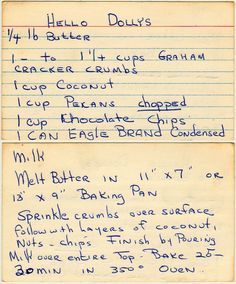 Hello Dollys
1/4 lb Butter
1 - to 1 1/4 cups Graham
Cracker Crumbs
1 cup Coconut
1 cup Pecans chopped
1 cup Chocolate Chips
1 Can Eagle Brand Condensed
Milk
Melt Butter in 11" x 7" or
13" x 9" Baking Pan
Sprinkle crumbs over surface
Follow with layers of coconut,
Nuts - chips Finish by Pouring
Milk over entire Top. Bake 25-
30 min in 350° Oven.